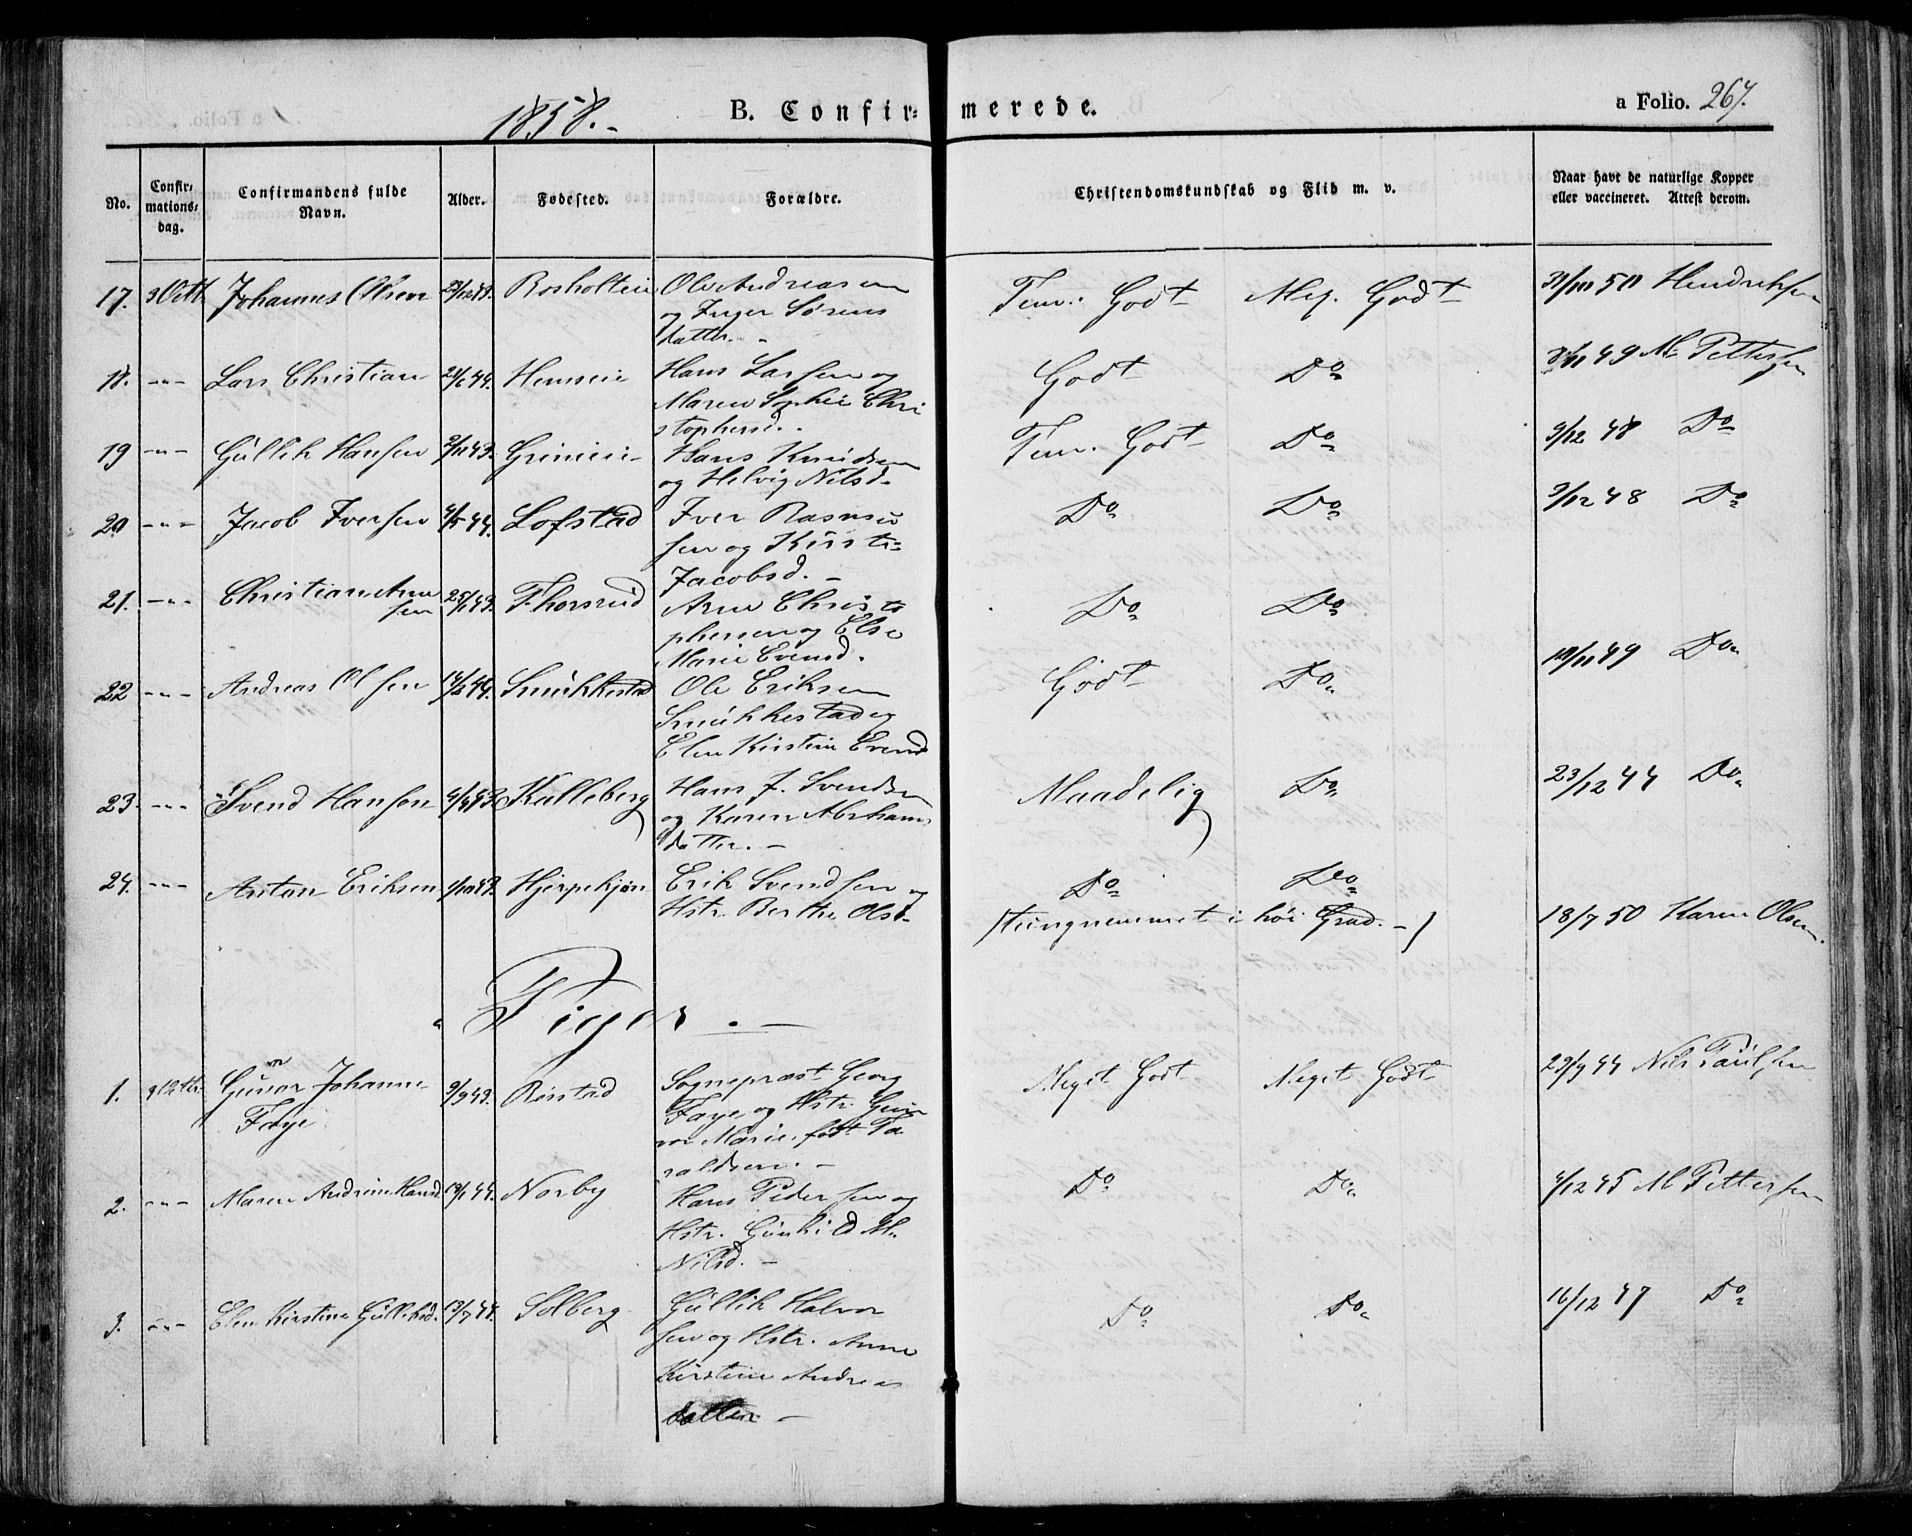 1858.-
B. Confir- merede.
a Folio. 267.
No.
Confir-
mations-
dag.
Confirmandens fulde
Navn.
Alder.
Fødested.
Forældre.
Christendomskundskab og Flid m. v.
Naar havt de naturlige Kopper
eller vaccineret. Attest derom.
17. 3 Octb. Johannes Olsen 43. Rosholteie Ole Andreasen
og Inger Sørens
datter. -
Tem. Godt Meg. Godt 50 Hendriksen
18. -"- Lars Christian 44. Hemseie Hans Larsen og
Maren Sophie Chri
stophersd.
Godt Do 49 M. Pettersen
19 -"- Gullik Hansen 43. Grinieie- Hans Knudsen
og Helvig Nilsd-
Tem. Godt Do 9/12 48 Do
20 -"- Jacob Iversen 4/5 44. Lofstad Iver Rasmus
sen og Kirsti
Jacobsd. -
Do Do 9/12 48 Do
21. -"- Christian Arne
sen 43. Thorsrud Arne Christo
phersen og Else
Marie Evensd.
Do Do
22 -"- Andreas Olsen 44. Smukkestad Ole Eriksen
Smukkestad og
Elen Kirstine Evensd
Godt Do 49 Do
23 -"- Svend Hansen 43. Kalleberg Hans J. Svendsen
og Karen Abrahams
datter. -
Maadelig Do 23/12 44 Do
24. -"- Anton Eriksen 43. Hjerpekjøn Erik Svendsen og
Hstr. Berthe Olsd-
Do Do
/tungnemmet i høi Grad. -/
18/7 50 Karen Olsen.
Piger. -
1. Gunvor Johanne
Faye 9/9 43. Rinstad Sognepræst Georg
Faye og Hstr. Gun
vor Marie, født Ta
raldsen. -
Meget Godt Meget Godt 29/9 44 Nils Paulsen
2. -"- Maren Andrine Hansd 44. Norby Hans Pedersen og
Hstr. Gunhild M.
Nilsd. -
Do Do 4/12 45 M Pettersen
3. -"- Elen Kirstine Gulliksd. 13/7 44. Solberg Gullik Halvor
sen og Hstr. Anne
Kirstine Andreas
datter -
Do Do 16/12 47 Do